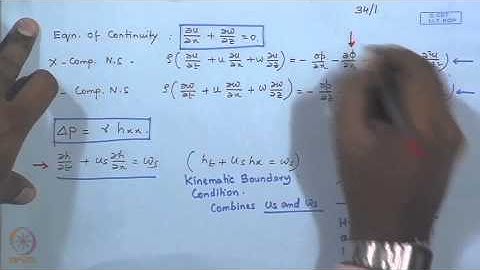 34/1
Eqn. of Continuity : ∂u/∂x + ∂w/∂z = 0.
X-Comp. N.S ρ(∂u/∂t + u ∂u/∂x + w ∂u/∂z) = - ∂p/∂x - ∂φ/∂x
- Comp. N.S ρ(∂w/∂t + u ∂w/∂x + w ∂w/∂z) = -
ΔP = γ hxx.
→ ∂h/∂t + us ∂h/∂x = ws (ht + us hx = ws)
Kinematic Boundary
Condition.
Combines us and ws